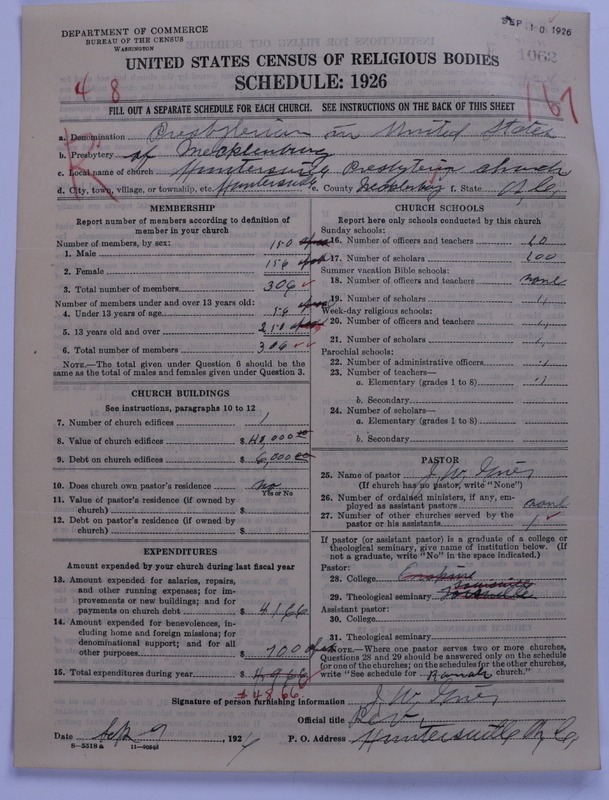 DEPARTMENT OF COMMERCE
BUREAU OF THE CENSUS
WASHINGTON
SEP 10 1926
1062
UNITED STATES CENSUS OF RELIGIOUS BODIES
SCHEDULE: 1926
4 8
167
FILL OUT A SEPARATE SCHEDULE FOR EACH CHURCH. SEE INSTRUCTIONS ON THE BACK OF THIS SHEET
a. Denomination Presbyterian in United States
b. Presbytery of Mecklenburg
c. Local name of church Huntersville Presbyterian church
d. City, town, village, or township, etc. Huntersville e. County Mecklenburg f. State N.C.
MEMBERSHIP
Report number of members according to definition of
member in your church
Number of members, by sex:
1. Male 150
2. Female 156
3. Total number of members 306
Number of members under and over 13 years old:
4. Under 13 years of age
5. 13 years old and over 250
6. Total number of members 306
NOTE.—The total given under Question 6 should be
same as the total of males and females given under Question 3.
CHURCH BUILDINGS
See instructions, paragraphs 10 to 12
7. Number of church edifices 1
8. Value of church edifices $
9. Debt on church edifices $ 6,000 00
10. Does church own pastor's residence no
Yes or No
11. Value of pastor's residence (if owned by
church) $
12. Debt on pastor's residence (if owned by
church) $
EXPENDITURES
Amount expended by your church during last fiscal year
13. Amount expended for salaries, repairs,
and other running expenses; for im-
provements or new buildings; and for
payments on church debt $ 4166
14. Amount expended for benevolences, in-
cluding home and foreign missions; for
denominational support; and for all
other purposes $ 700
15. Total expenditures during year $ 4966
$4866
CHURCH SCHOOLS
Report here only schools conducted by this church
Sunday schools:
16. Number of officers and teachers 10
17. Number of scholars 100
Summer vacation Bible schools:
18. Number of officers and teachers none
19. Number of scholars "
Week-day religious schools:
20. Number of officers and teachers "
21. Number of scholars "
Parochial schools:
22. Number of administrative officers "
23. Number of teachers—
a. Elementary (grades 1 to 8) "
b. Secondary
24. Number of scholars—
a. Elementary (grades 1 to 8)
b. Secondary
PASTOR
25. Name of pastor J. W.
(If church has no pastor, write "None")
26. Number of ordained ministers, if any, em-
ployed as assistant pastors none
27. Number of other churches served by the
pastor or his assistants 1
If pastor (or assistant pastor) is a graduate of a college or
theological seminary, give name of institution below. (If
not a graduate, write "No" in the space indicated.)
Pastor:
28. College Erskine
29. Theological seminary
Assistant pastor:
30. College
31. Theological seminary
NOTE.—Where one pastor serves two or more churches,
Questions 28 and 29 should be answered only on the schedule
for one of the churches; on the schedules for the other churches,
write "See schedule for Ramah church."
Signature of person furnishing information J. W.
Official title Rev.
Date Sep 9, 192
P. O. Address Huntersville N.C.
8—5318 a